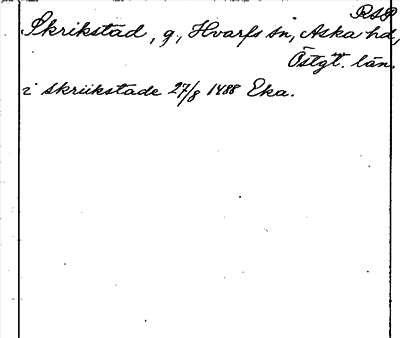 RSP
Skrikstad, g, Hvarfs sn, Aska hd,
Östgt. län.
i skriikstade 27/8 1488 Eka.